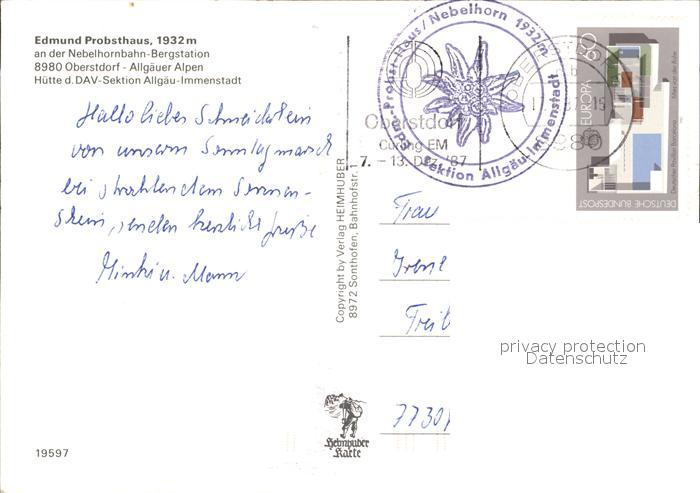 Edmund Probsthaus, 1932 m
an der Nebelhornbahn-Bergstation
8980 Oberstdorf - Allgäuer Alpen
Hütte d. DAV-Sektion Allgäu-Immenstadt
Hallo liebes
von unserm Sonntagmarsch
bei strahlendem Sonnen-
schein, senden herzliche Grüße
u. Mann
19597
Copyright by Verlag HEIMHUBER
8972 Sonthofen, Bahnhofstr. 1
Heimhuber
Karte
Edm.-Probst-Haus / Nebelhorn 1932 m
Sektion Allgäu-Immenstadt
Oberstdorf
Curling EM
7. - 13. Dez. '87
8980
60
EUROPA
DEUTSCHE BUNDESPOST
Frau
Irene
Treib
7730
privacy protection
Datenschutz